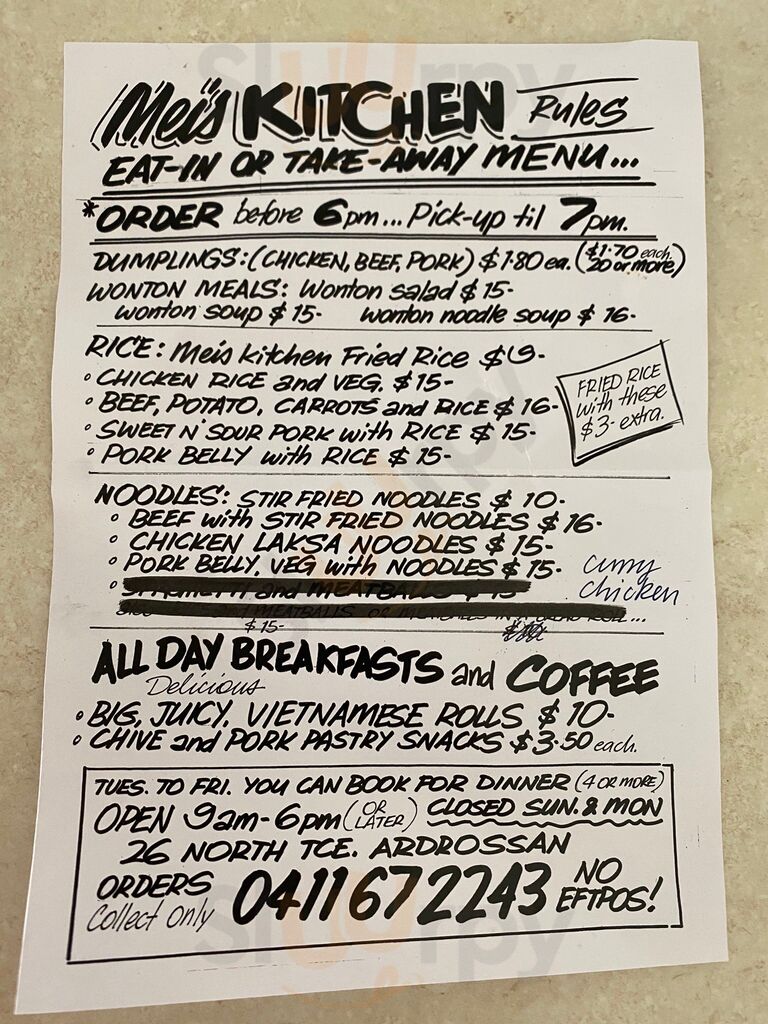 Mei's KITCHEN Rules
EAT-IN OR TAKE-AWAY MENU...
*ORDER before 6pm... Pick-up til 7pm.
DUMPLINGS: (CHICKEN, BEEF, PORK) $1.80 ea. ($1.70 each 20 or more)
WONTON MEALS: Wonton salad $15-
wonton soup $15- wonton noodle soup $16-
RICE: Mei's kitchen Fried Rice $9-
• CHICKEN RICE and VEG. $15-
• BEEF, POTATO, CARROTS and RICE $16-
• SWEET N' SOUR PORK with RICE $15-
• PORK BELLY with RICE $15-
FRIED RICE
with these
$3- extra.
NOODLES: STIR FRIED NOODLES $10-
• BEEF with STIR FRIED NOODLES $16-
• CHICKEN LAKSA NOODLES $15-
• PORK BELLY, VEG with NOODLES $15-
Curry
chicken
and MEATBALLS $15-
MEATBALLS OR
$15-
ALL DAY BREAKFASTS and COFFEE
Delicious
• BIG, JUICY, VIETNAMESE ROLLS $10-
• CHIVE and PORK PASTRY SNACKS $3.50 each.
TUES. TO FRI. YOU CAN BOOK FOR DINNER (4 OR MORE)
OPEN 9am-6pm (OR LATER) CLOSED SUN. & MON
26 NORTH TCE. ARDROSSAN
ORDERS
Collect only
0411672243
NO
EFTPOS!